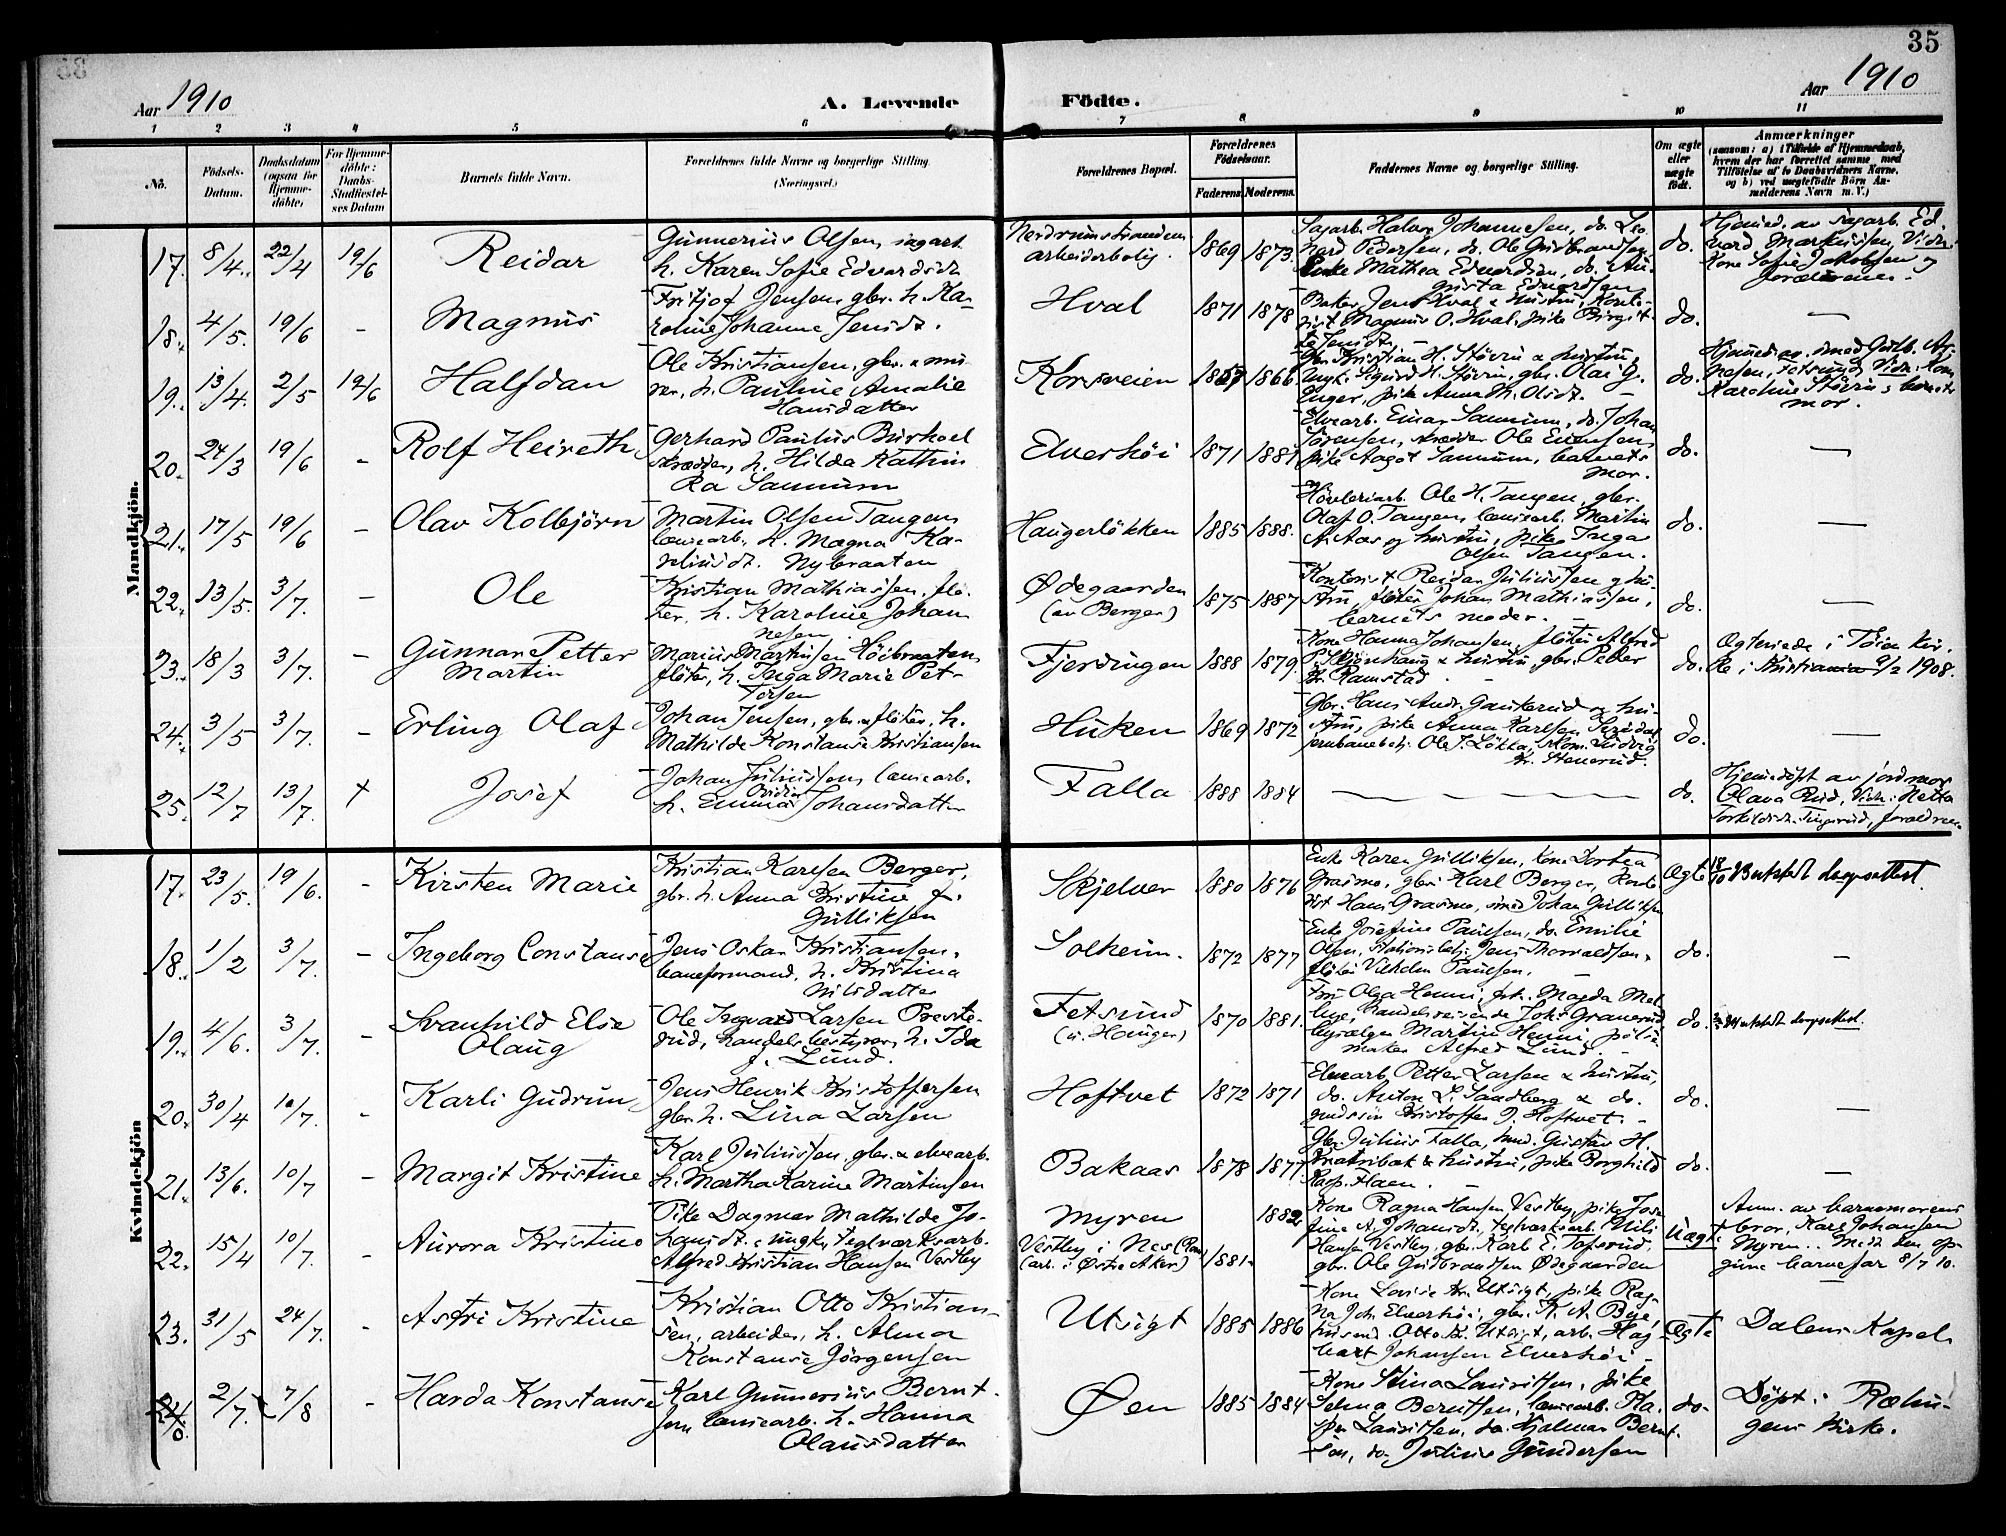 35
Aar 1910
A. Levende Födte.
Aar 1910
1 2 3 4 5 6 7 8 9 10 11
No.
Födsels-Datum.
Daabsdatum (ogsaa for Hjemme-döbte)
For Hjemme-döbte: Daabs-Stadfæstelses Datum
Barnets fulde Navn.
Forældrenes fulde Navne og borgerlige Stilling. (Næringsvei.)
Forældrenes Bopæl.
Forældrenes Födselsaar.
Faderens. Moderens.
Faddernes Navne og borgerlige Stilling.
Om ægte eller uægte födt.
Anmærkninger
(saasom: a) i Tilfælde af Hjemmedaab, hvem der har forrettet samme, med Tilföielse af to Daabsvidners Navne, og b) ved uægtefödte Börn Anmelderens Navn m. V.)
Mandkjön.
17. 8/4. 22/4 19/6 Reidar
Gunnerius Olsen, sagarb.
h. Karen Sofie Edvardsdt.
arbeiderbolig. 1869 1873.
Sagarb. Halvor Johannesen, do. Leo-
nard Pedersen, do. Ole Gulbrandsen,
Enke Mathea Edvardsen, do. Au-
gusta Edvardsen
do.
Hjemmed. av sagarb. Ed-
vard Markussen, Vidn:
Kone Sofie Jakobsen og
forældrene.
18. 4/5. 19/6 - Magnus
Fritjof Jensen, gbr. h. Ka-
roline Johanne Jensdt.
Hval 1871 1878
Baker Jens Hval & hustru,
Magnus O. Hval, pike Birgit-
do. —
19. 13/4. 2/5 19/6 Halfdan
Ole Kristiansen, gbr. & mu-
rer, h. Pauline Amalie
Hansdatter
Korsveien 1866
Gbr. Kristian H. Støvin & hustru,
ungk. Sigurd H. Støvin, gbr. Olai G.
Unger, pike Anna M. Olsdt. -
do.
Karoline Støvin, barnets
mor.
20. 24/3 19/6 - Rolf Heireth
Gerhard Paulus
skrædder, h. Hilda Kathin
Ra Sannum
Elverhöi 1871 1881
Elvearb. Einar Sannum, do. Johan
Sörensen, skrædder Ole Evensen,
pike Aagot Sannum, barnets
mor.
do. —
21. 17/5 19/6 - Olav Kolbjörn
Martin Olsen Tangen
lænsearb. h. Magna Ka-
Nybraaten
Haugerlökken 1885 1888.
Hövleriarb. Ole H. Tangen, gbr.
Olaf O. Tangen, lænsearb. Martin
A. Aas og hustru, pike Inga
Olsen Tangen.
do. —
22. 13/5. 3/7. - Ole
Kristian Mathiassen, flö-
ter, h. Karoline Johan
nesen
Ødegaarden
(av Berger) 1875 1887
Kontorist Reidar Juliussen og hu-
stru, flöter Johan Mathiassen,
barnets moder. -
do. —
23. 18/3 3/7. - Gunnar Petter
Martin
Marius Martinsen Höibraaten,
flöter, h. Inga Marie Pet-
tersen
Fjerdingen 1888 1879.
Kone Hanna Johansen, flöter Alfred
P. Skjönhaug & hustru, gbr. Peder
Kr. Ramstad. -
do.
Ægteviede i Töien Kir-
ke i Kristiania 9/2 1908.
24. 3/5 3/7. - Erling Olaf
Johan Jensen, gbr. & flöter, h.
Mathilde Konstanse Kristiansen
Huken 1869 1872
Gbr. Hans Andr. Gankerud og hu-
stru, pike Anna Karlsen
jernbanebetj. Ole J. Løkka, Ludvig
Kr. Henerud.
do. —
25. 12/7 13/7. + Josef
Johan Juliussen, lænsearb.
h. Emma Ovidia Johansdatter
Falla 1888 1884
— — — — —
do.
Hjemmedöpt av jordmor
Olava Rud, Vidn: Netta
Torkildsdt. Tingerud, forældrene
Kvindekjön
17. 23/5. 19/6. - Kirsten Marie
Kristian Karlsen Berger,
gbr. h. Anna Kristine f.
Gulliksen
Skjelver 1880 1876
Enke Karen Gulliksen, kone Dortea
Grasmo, gbr. Karl Berger, Konto-
rist Hans Grasmo, smed Johan Gulliksen
Ægte
18/10 Utstedt daapsattest.
18. 1/2 3/7. - Ingeborg Constanse
Jens Oskar Kristiansen,
baneformand, h. Kristina
Nilsdatter
Solheim. 1872 1877
Enke Josefine Paulsen, do. Emilie
Olsen, stationsbetj. Jens Thorvaldsen,
flöter Vilhelm Paulsen.
do. —
19. 4/6. 3/7. - Svanhild Else
Olaug
Ole Ingvard Larsen Preste-
rud, handelsbestyrer, h. Ida
f. Lund.
Fetsund
(u. Hauger) 1870 1881.
Fru Olga Henni, frk. Magda Mel-
bye, handelsreisende Joh. Granerud
Martin Henni,
maker Alfred Lund. -
do.
Utstedt daapsattest.
20. 30/4 10/7. - Karli Gudrun
Jens Henrik Kristoffersen
gbr. h. Lina Larsen
Hoftvet 1872 1871
Elvearb. Petter Larsen & hustru,
do. Anton L. Sandberg & do.
Kristoffer J. Hoftvet. -
do. —
21. 13/6. 10/7 - Margit Kristine
Karl Juliussen, gbr. & elvearb.
h. Martha Karine Martinsen
Bakaas 1878 1877
Gbr. Julius Falla, smd. Gustav H.
& hustru, pike Borghild
do. —
22. 15/4 10/7. - Aurora Kristine
Pike Dagmar Mathilde Jo-
hansdt. & ungk., teglverksarb.
Alfred Kristian Hansen Vestby
Myren 1882
Vestby i Nes
arb. i Østre Aker) 1881.
Kone Ragna Hansen Vestby, pike Jose-
fine A. Johansdt., teglverksarb. Nils
Hansen Vestby, gbr. Karl E. Tofsrud,
gbr. Ole Gulbrandsen Ødegaarden
Uægte
Anm. av barnemorens
bror, Karl Johansen
Myren. Medt. den op-
givne barnefar 8/7 10.
23. 31/5 24/7. - Astri Kristine
Kristian Otto Kristian-
sen, arbeider, h. Alma
Konstanse Jörgensen
Utsigt 1885 1886
Kone Lovise Kr. Utsigt, pike Rag-
na Joh. Elverhöi, gbr. K. A. Bye,
husmd. Otto Kr. Utsigt, arb. Hag-
bart Johansen Elverhöi -
Ægte
Dalens Kapel.
2/7. 7/8 - Harda Konstanse
Karl Gunnerius Bernt-
sen lænsearb. h. Hanna
Olausdatter
Øen 1885 1884
Kone Stina Lauritsen, pike
Selma Berntsen, lænsearb. Ka-
Lauritsen, do. Hjalmar Bernt-
sen, do. Julius Gundersen
do.
Döpt i Rælin-
gens Kirke.